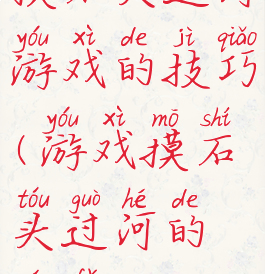 yóu xì de jì qiǎo
游戏的技巧
yóu xì mō shí
(游戏摸石
tóu guò hé de
头过河的